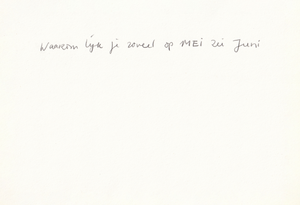 Waarom lijk je zoveel op MEI zei Juni